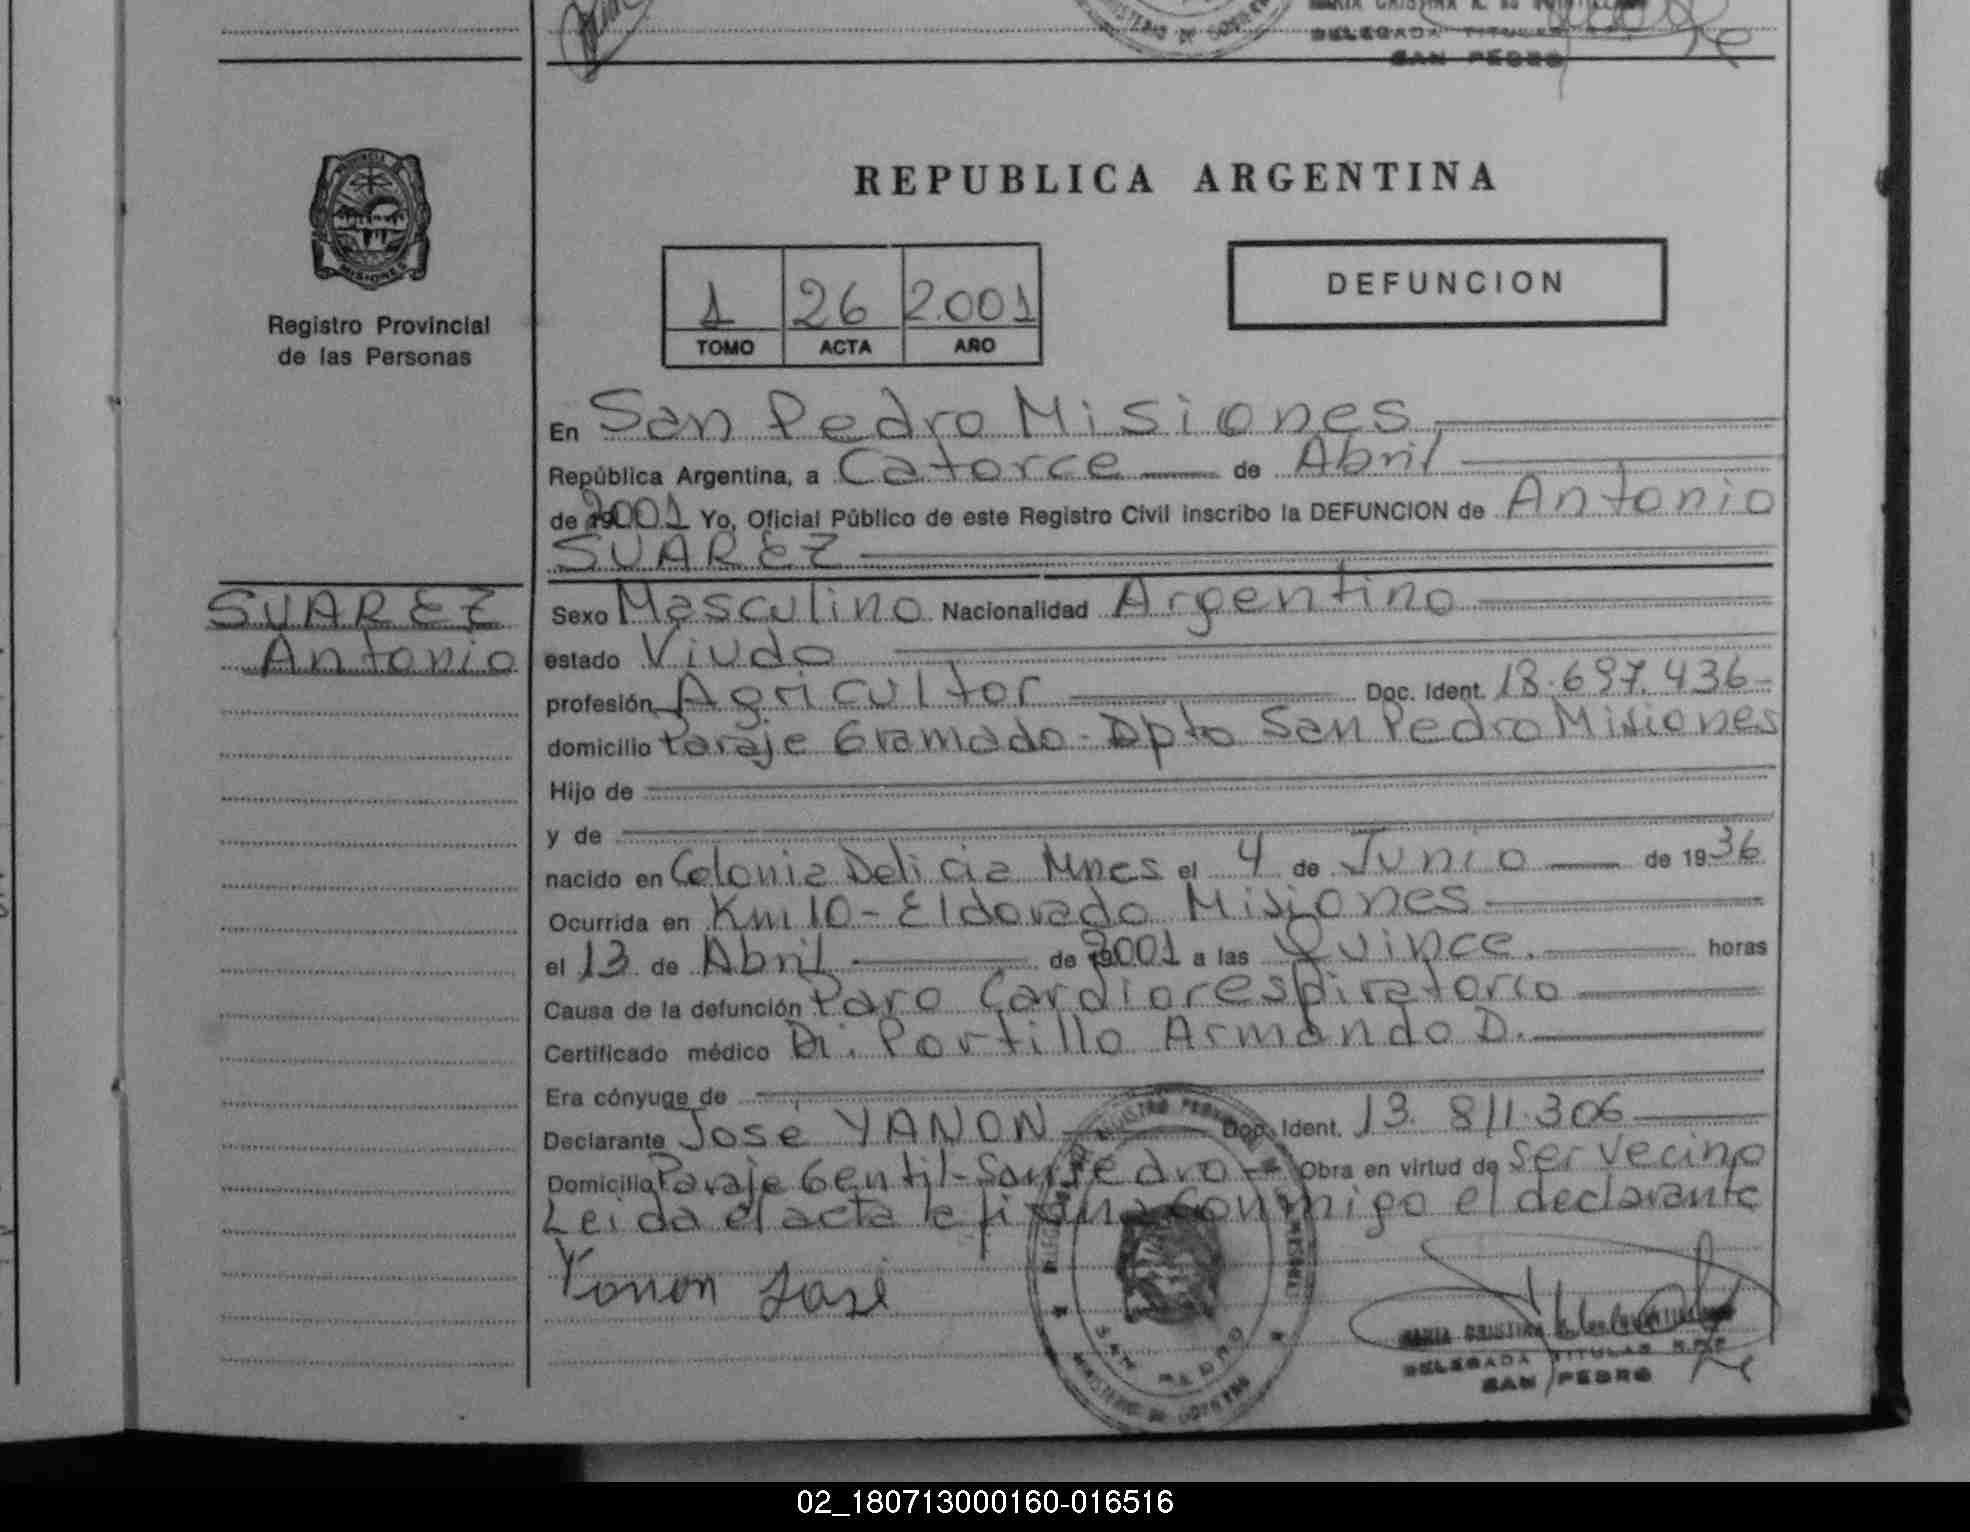 DELEGADA TITULAR
SAN PEDRO
PROVINCIA
MISIONES
Registro Provincial
de las Personas
REPUBLICA ARGENTINA
1 26 2.001
TOMO ACTA AÑO
DEFUNCION
En San Pedro Misiones
República Argentina, a Catorce de Abril
de 2001 Yo, Oficial Público de este Registro Civil inscribo la DEFUNCION de Antonio
SUAREZ
SUAREZ
Antonio
Sexo Masculino Nacionalidad Argentino
estado Viudo
profesión Agricultor Doc. Ident. 18.697.436-
domicilio Paraje Gramado - Dpto San Pedro Misiones
Hijo de
y de
nacido en Colonia Delicia Mnes el 4 de Junio de 1936
Ocurrida en Km 10 - Eldorado Misiones
el 13 de Abril de 2001 a las Quince. horas
Causa de la defunción Paro Cardiorespiratorio
Certificado médico Dr. Portillo Armando D.
Era cónyuge de
Declarante José YANON Doc. Ident. 13.811.306
Domicilio Paraje Gentil - San Pedro - Obra en virtud de ser vecino
Leida el acta la firma conmigo el declarante
Yanon José
SAN PEDRO
MARIA CRISTINA
DELEGADA TITULAR R.P.P
SAN PEDRO
02_180713000160-016516